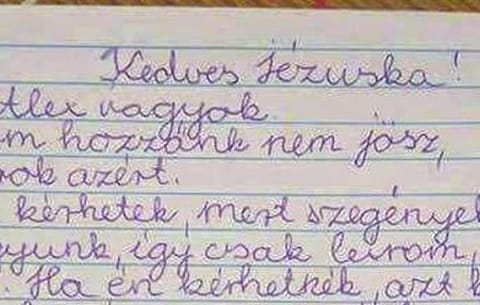 Kedves Jézuska!
Alex vagyok.
m hozzánk nem jösz,
rok azért.
kérhetek, mert szegények
gyunk, így csak leirom,
. Ha én kérhetnék, azt k